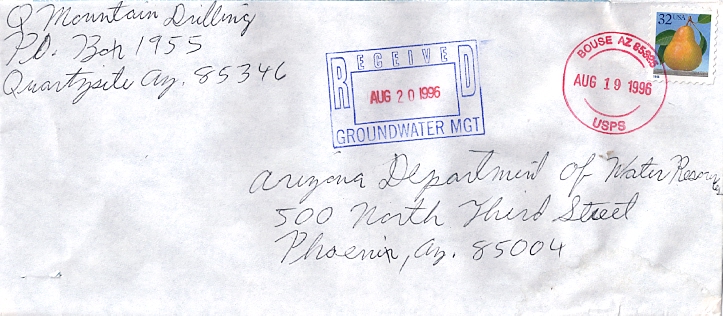 Q Mountain Drilling
P.O. Box 1955
Quartzsite Az. 85346
RECEIVED
AUG 20 1996
GROUNDWATER MGT
BOUSE AZ 85325
AUG 19 1996
USPS
32 USA
Arizona Department of Water Resources
500 North Third Street
Phoenix, Az. 85004